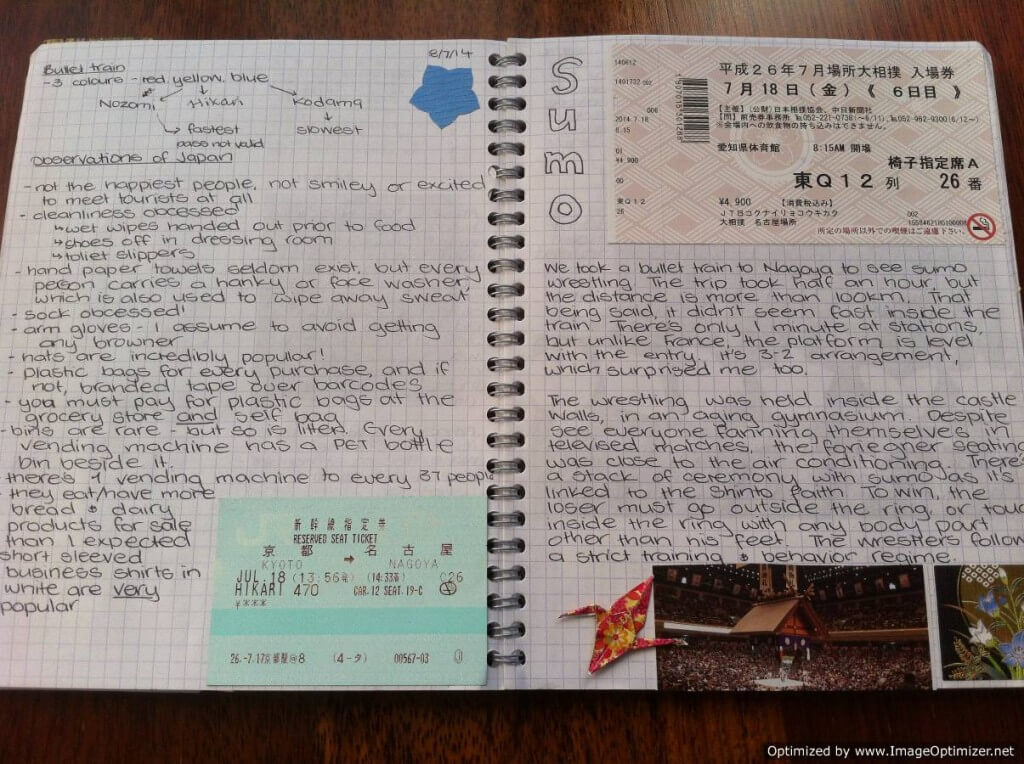 8/7/14
Bullet train
-3 colours - red, yellow, blue
Nozomi Hikari Kodama
fastest slowest
pass not valid
Observations of Japan
- not the happiest people, not smiley or excited
to meet tourists at all
- cleanliness obcessed
↳wet wipes handed out prior to food
↳shoes off in dressing room
↳toliet slippers
- hand paper towels seldom exist, but every
person carries a hanky or face washer,
which is also used to wipe away sweat
- sock obcessed!
- arm gloves - I assume to avoid getting
any browner
- hats are incredibly popular!
- plastic bags for every purchase, and if
not, branded tape over barcodes
- you must pay for plastic bags at the
grocery store and self bag
- bins are rare but so is litter. Every
vending machine has a PET bottle
bin beside it.
- there's 1 vending machine to every 37 people
- they eat/have more
bread & dairy
products for sale
than I expected
short sleeved
business shirts in
white are very
popular
新幹線指定券
RESERVED SEAT TICKET
京都 → 名古屋
KYOTO NAGOYA
JUL.18 (13:56発) (14:33着) C26
HIKARI 470 CAR.12 SEAT.19-C
¥***
26.-7.17京都駅@8 (4-タ) 00567-03
Sumo
140612
1401732 002
006
2014.7.18
8.15
01
¥4,900
00
東Q12
26
平成26年7月場所大相撲 入場券
7月18日(金)《 6日目 》
【主催】(公財)日本相撲協会、中日新聞社
【問】前売券事務所 ℡052-221-0738(~6/11),℡052-962-9300(6/12~)
※会場内への飲食物の持ち込みはできません。
愛知県体育館 8:15AM 開場
椅子指定席A
東Q12 列 26 番
¥4,900 【消費税込み】
JTBコクナイリョコウキカク 002
大相撲 名古屋場所
所定の場所以外での喫煙はご遠慮下さい。
We took a bullet train to Nagoya to see sumo
wrestling. The trip took half an hour, but
the distance is more than 100km. That
being said, it didn't seem fast inside the
train. There's only 1 minute at stations,
but unlike France, the platform is level
with the entry. It's 3-2 arrangement,
which surprised me too.
The wrestling was held inside the castle
walls, in an aging gymnasium. Despite
see everyone fanning themselves in
televised matches, the foriegner seating
was close to the air conditioning. There's
a stack of ceremony with sumo as it's
linked to the shinto faith. To win, the
loser must go outside the ring, or touch
inside the ring with any body part
other than his feet. The wrestlers follow
a strict training & behavior regime.
Optimized by www.ImageOptimizer.net